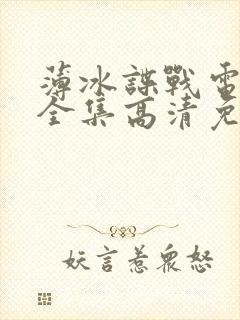 薄冰諜戰電
全集高清免
妖言惹眾怒